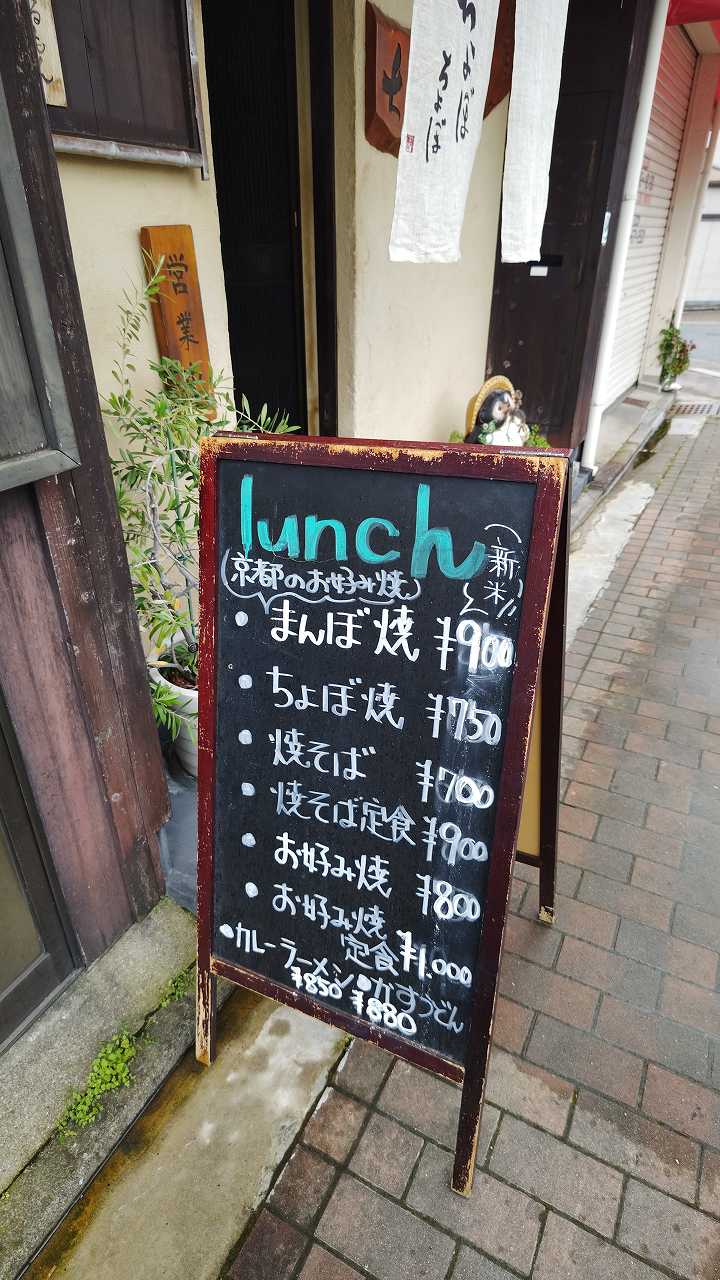 ちょぼちょぼ
営業
lunch
(新米)
(京都のお好み焼)
・まんぼ焼 ¥900
・ちょぼ焼 ¥750
・焼そば ¥700
・焼そば定食 ¥900
・お好み焼 ¥800
・お好み焼定食 ¥1.000
・カレーラーメン ・かすうどん
¥850 ¥880